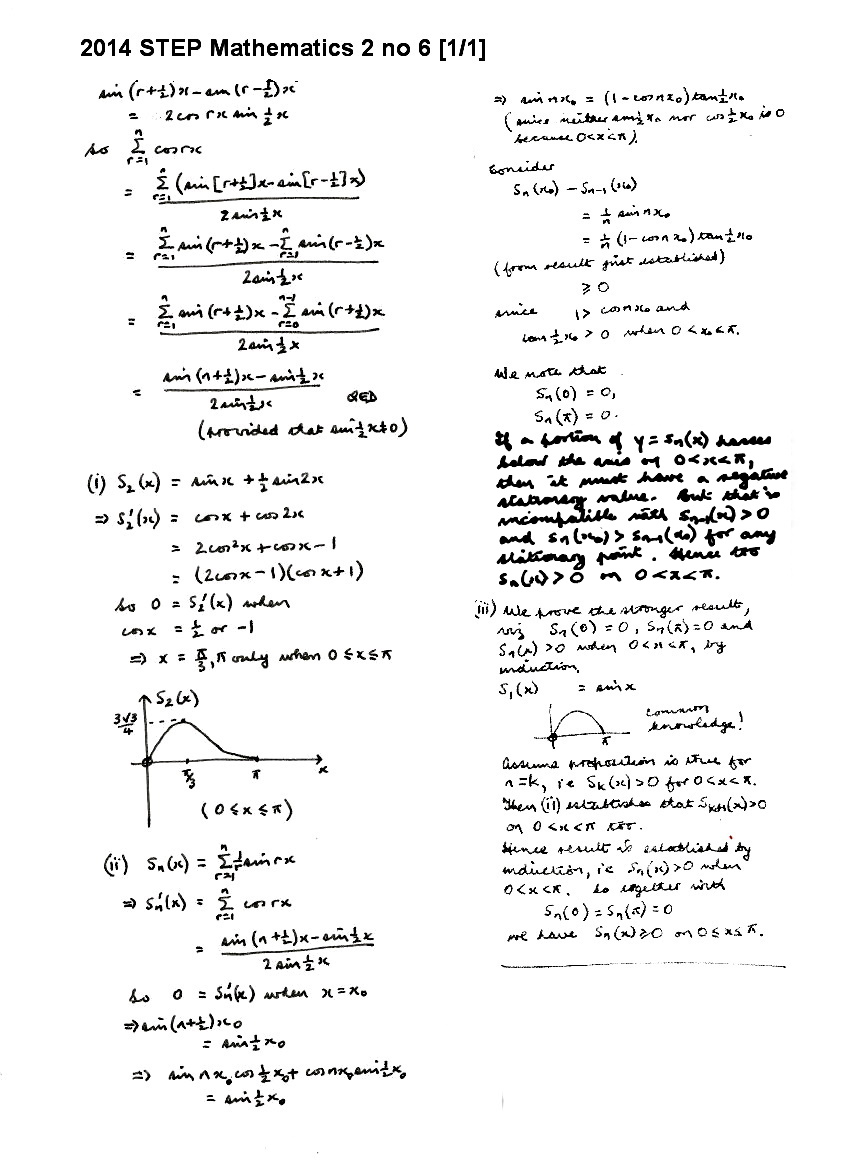 2014 STEP Mathematics 2 no 6 [1/1]
sin (r+½)x - sin (r-½)x
= 2 cos rx sin ½x
So n Σ r=1 cos rx
= n Σ r=1 (sin[r+½]x - sin[r-½]x) / 2 sin ½x
= n Σ r=1 sin(r+½)x - n Σ r=1 sin(r-½)x / 2 sin ½x
= n Σ r=1 sin(r+½)x - n-1 Σ r=0 sin(r+½)x / 2 sin ½x
= sin(n+½)x - sin ½x / 2 sin ½x QED
(provided that sin ½x ≠ 0)
(i) S₂(x) = sin x + ½ sin 2x
⇒ S₂'(x) = cos x + cos 2x
= 2cos²x + cos x - 1
= (2cos x - 1)(cos x + 1)
So 0 = S₂'(x) when
cos x = ½ or -1
⇒ x = π/3, π only when 0 ≤ x ≤ π
S₂(x)
3√3/4
π/3 π x
(0 ≤ x ≤ π)
(ii) Sₙ(x) = n Σ r=1 1/r sin rx
⇒ Sₙ'(x) = n Σ r=1 cos rx
= sin(n+½)x - sin ½x / 2 sin ½x
So 0 = Sₙ'(x) when x = x₀
⇒ sin(n+½)x₀
= sin ½x₀
⇒ sin nx₀ cos ½x₀ + cos nx₀ sin ½x₀
= sin ½x₀
⇒ sin nx₀ = (1 - cos nx₀) tan ½x₀
(since neither sin ½x₀ nor cos ½x₀ is 0
because 0<x<π).
Consider
Sₙ(x₀) - Sₙ₋₁(x₀)
= 1/n sin nx₀
= 1/n (1 - cos nx₀) tan ½x₀
(from result just established)
≥ 0
since 1 > cos nx₀ and
tan ½x₀ > 0 when 0 < x₀ < π.
We note that
Sₙ(0) = 0,
Sₙ(π) = 0.
If a portion of y = Sₙ(x) passes
below the axis on 0<x<π,
then it must have a negative
stationary value. But that is
incompatible with Sₙ₋₁(x) > 0
and Sₙ(x₀) > Sₙ₋₁(x₀) for any
stationary point. Hence too
Sₙ(x) > 0 on 0<x<π.
(iii) We prove the stronger result,
viz Sₙ(0) = 0, Sₙ(π) = 0 and
Sₙ(x) > 0 when 0<x<π, by
induction.
S₁(x) = sin x
π
common
knowledge!
Assume proposition is true for
n=k, ie Sₖ(x) > 0 for 0<x<π.
Then (ii) establishes that Sₖ₊₁(x) > 0
on 0<x<π too.
Hence result is established by
induction, ie Sₙ(x) > 0 when
0<x<π. So together with
Sₙ(0) = Sₙ(π) = 0
we have Sₙ(x) ≥ 0 on 0 ≤ x ≤ π.